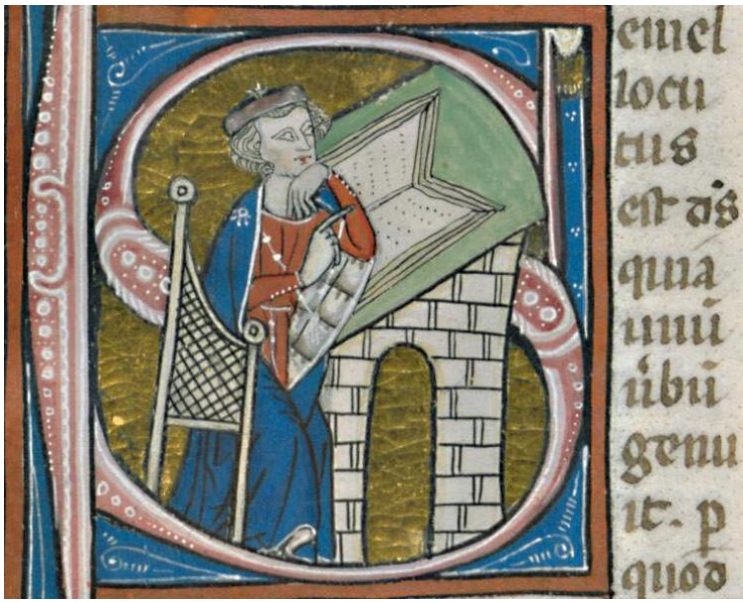 Semel
locu
tus
est d̄s
quia
unū
u̾bū
genu
it. ꝑ
quod